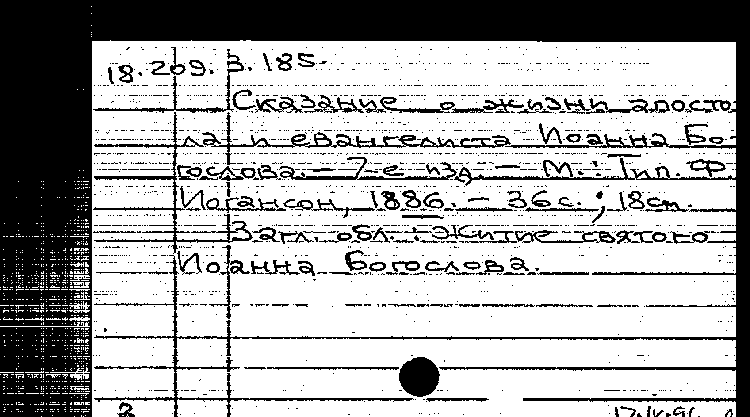 18.209.3.185.
Сказание о жизни апосто
ла и евангелиста Иоанна Бо-
гослова. — 7-е изд. — М. : Тип. Ф.
Иогансон, 1886. — 36 с. ; 18 см.
Загл. обл. : Житие святого
Иоанна Богослова.